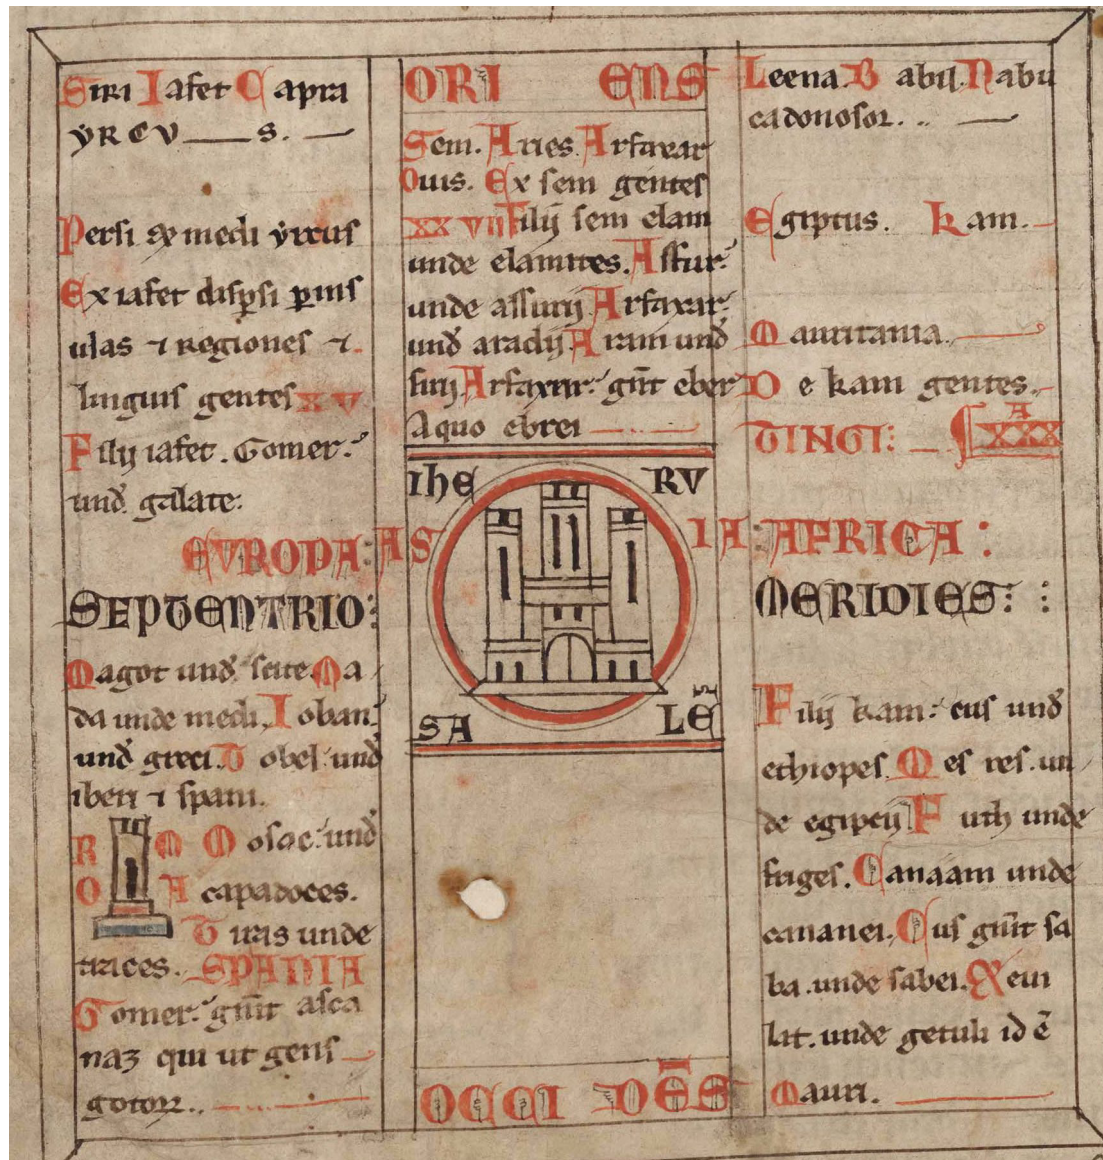 Siri Iafet Capra
yRCV s.
Persi & medi yrcus
Ex iafet disp̲si p̲ inf
ulas ⁊ regiones ⁊
linguis gentes xv
Filij iafet. Gomer.
und̄ galate:
EVROPA:
SEPTENTRIO:
Magot und̄ scite. Ma
da unde medi. Ioban.
und̄ greci. Tobel. und̄
iberi ⁊ spani.
ROMA
Mosac. und̄
capadoces.
Tiras unde
traces. SPANIA
Gomer. gn̄it asca
naz qui ut gens
gotoꝝ..
ORI ENS
Sem. Aries. Arfaxar
Ouis. Ex sem gentes
xx vii Filij sem elam
unde elamites. Assur.
unde assurij Arfaxar.
und̄ aradij Aram und̄
sirij Arfaxar. gn̄t eber
A quo ebrei
IHE RV
AS IA
SA LE̅
OCCI DE̅S
Leena. Babil. Nabu
cadonosor.
Egiptus. kam.
Mauritania.
De kam gentes.
TINGI: XXX A
:AFRICA:
MERIDIES:
Filij kam: cus und̄
ethiopes. Mes res. un
de egiptij Futh unde
fuges. Canaam unde
cananei. Cus gn̄it sa
ba. unde sabei. &eui
lat. unde getuli id ē
Mauri.